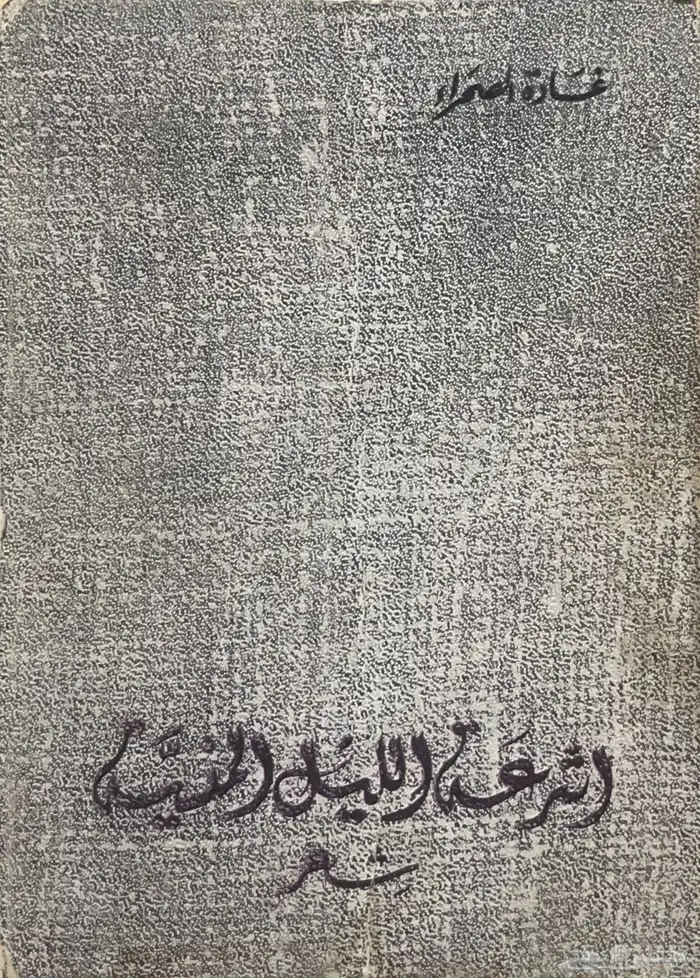 غادة الصحراء
اشرعة الليل المنسيَّة
شعر